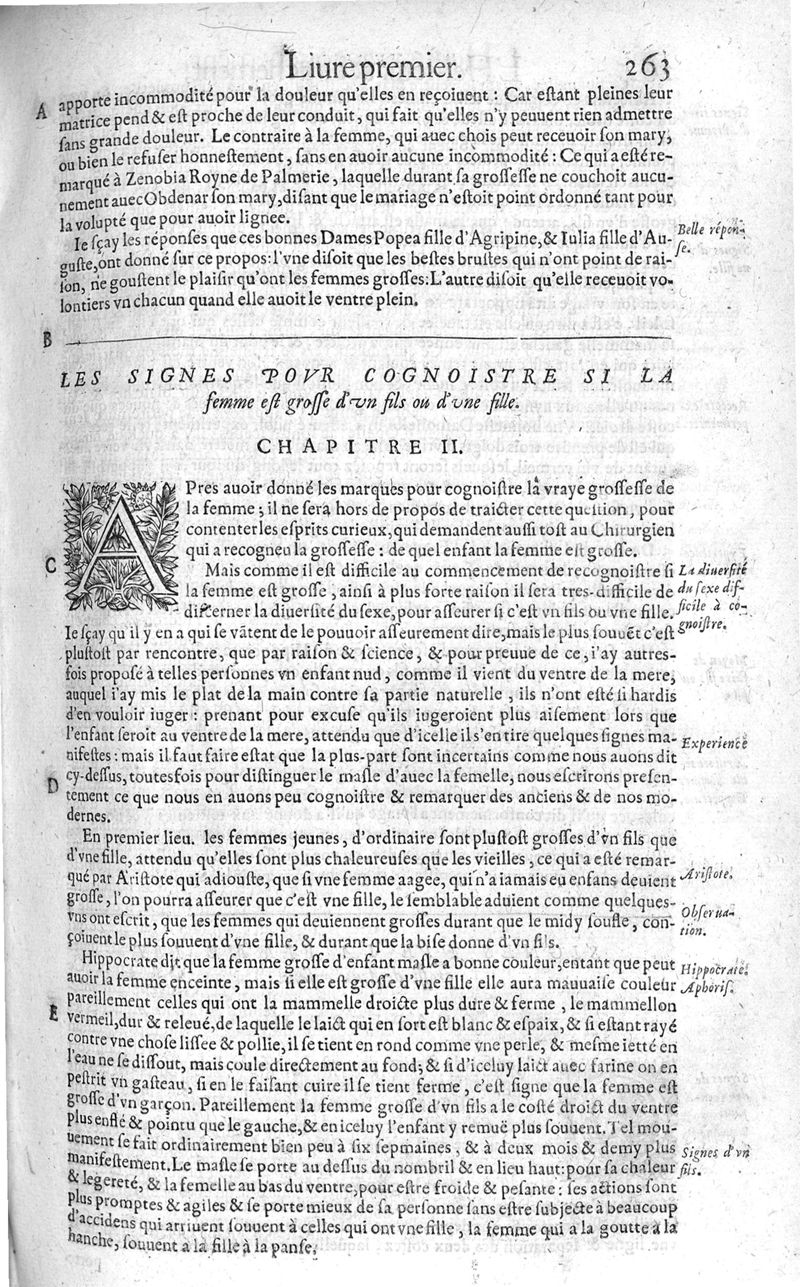 Liure premier. 263
A
apporte incommodité pour la douleur qu'elles en reçoiuent : Car eſtant pleines leur
matrice pend & eſt proche de leur conduit, qui fait qu'elles n'y peuuent rien admettre
ſans grande douleur. Le contraire à la femme, qui auec chois peut receuoir ſon mary,
ou bien le refuſer honneſtement, ſans en auoir aucune incommodité : Ce qui a eſté re-
marqué à Zenobia Royne de Palmerie, laquelle durant ſa groſſeſſe ne couchoit aucu-
nement auec Obdenar ſon mary, diſant que le mariage n'eſtoit point ordonné tant pour
la volupté que pour auoir lignee.
Ie ſçay les réponſes que ces bonnes Dames Popea fille d'Agripine, & Iulia fille d'Au-
guſte, ont donné ſur ce propos: l'vne diſoit que les beſtes bruſtes qui n'ont point de rai-
ſon, ne gouſtent le plaiſir qu'ont les femmes groſſes: L'autre diſoit qu'elle receuoit vo-
lontiers vn chacun quand elle auoit le ventre plein.
Belle répon-
ſe.
B
LES SIGNES POVR COGNOISTRE SI LA
femme eſt groſſe d'vn fils ou d'vne fille.
CHAPITRE II.
APres auoir donné les marques pour cognoiſtre la vraye groſſeſſe de
la femme, il ne ſera hors de propos de traicter cette queſtion, pour
contenter les eſprits curieux, qui demandent auſſi toſt au Chirurgien
qui a recogneu la groſſeſſe : de quel enfant la femme eſt groſſe.
C
Mais comme il eſt difficile au commencement de recognoiſtre ſi
la femme eſt groſſe, ainſi à plus forte raiſon il ſera tres-difficile de
diſcerner la diuerſité du ſexe, pour aſſeurer ſi c'eſt vn fils ou vne fille.
La diuerſité
du ſexe dif-
ficile à co-
gnoiſtre.
Ie ſçay qu'il y en a qui ſe vãtent de le pouuoir aſſeurement dire, mais le plus ſouuẽt c'eſt
pluſtoſt par rencontre, que par raiſon & ſcience, & pour preuue de ce, i'ay autres-
fois propoſé à telles perſonnes vn enfant nud, comme il vient du ventre de la mere,
auquel i'ay mis le plat de la main contre ſa partie naturelle, ils n'ont eſté ſi hardis
d'en vouloir iuger : prenant pour excuſe qu'ils iugeroient plus aiſement lors que
l'enfant ſeroit au ventre de la mere, attendu que d'icelle il s'en tire quelques ſignes ma-
nifeſtes : mais il faut faire eſtat que la plus-part ſont incertains comme nous auons dit
Experience
D
cy-deſſus, toutesfois pour diſtinguer le maſle d'auec la femelle, nous eſcrirons preſen-
tement ce que nous en auons peu cognoiſtre & remarquer des anciens & de nos mo-
dernes.
En premier lieu. les femmes jeunes, d'ordinaire ſont pluſtoſt groſſes d'vn fils que
d'vne fille, attendu qu'elles ſont plus chaleureuſes que les vieilles, ce qui a eſté remar-
qué par Ariſtote qui adiouſte, que ſi vne femme aagee, qui n'a iamais eu enfans deuient
Ariſtote.
groſſe, l'on pourra aſſeurer que c'eſt vne fille, le ſemblable aduient comme quelques-
vns ont eſcrit, que les femmes qui deuiennent groſſes durant que le midy ſoufle, con-
çoiuent le plus ſouuent d'vne fille, & durant que la biſe donne d'vn fils.
Obſerua-
tion.
Hippocrate dit que la femme groſſe d'enfant maſle a bonne couleur, entant que peut
auoir la femme enceinte, mais ſi elle eſt groſſe d'vne fille elle aura mauuaiſe couleur
Hippocrate.
Aphoriſ.
E
Pareillement celles qui ont la mammelle droicte plus dure & ferme, le mammellon
vermeil, dur & releué, de laquelle le laict qui en ſort eſt blanc & eſpaix, & ſi eſtant rayé
contre vne choſe liſſee & pollie, il ſe tient en rond comme vne perle, & meſme ietté en
l'eau ne ſe diſſout, mais coule directement au fond; & ſi d'iceluy laict auec farine on en
peſtrit vn gaſteau, ſi en le faiſant cuire il ſe tient ferme, c'eſt ſigne que la femme eſt
groſſe d'vn garçon. Pareillement la femme groſſe d'vn fils a le coſté droict du ventre
plus enflé & pointu que le gauche, & en iceluy l'enfant y remuë plus ſouuent. Tel mou-
uement ſe fait ordinairement bien peu à ſix ſepmaines, & à deux mois & demy plus
manifeſtement. Le maſle ſe porte au deſſus du nombril & en lieu haut: pour ſa chaleur
Signes d'vn
fils.
& legereté, & la femelle au bas du ventre, pour eſtre froide & peſante : ſes actions ſont
plus promptes & agiles & ſe porte mieux de ſa perſonne ſans eſtre ſubjecte à beaucoup
d'accidens qui arriuent ſouuent à celles qui ont vne fille, la femme qui a la goutte à la
hanche, ſouuent a la fille à la panſe.